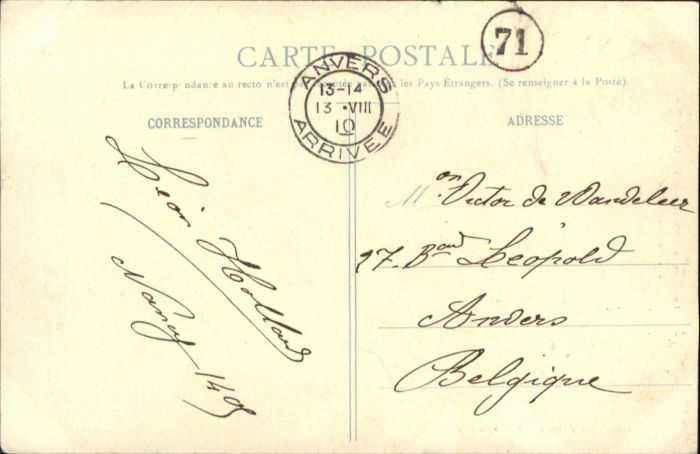 71
CARTE POSTALE
La Correspondance au recto n'est pas acceptée par tous les Pays Étrangers. (Se renseigner à la Poste)
ANVERS
13-14
13 • VIII
10
ARRIVÉE
CORRESPONDANCE
ADRESSE
Léon Holland
Nancy
Mon Victor de Wandeleer
27. Bard Léopold
Anvers
Belgique